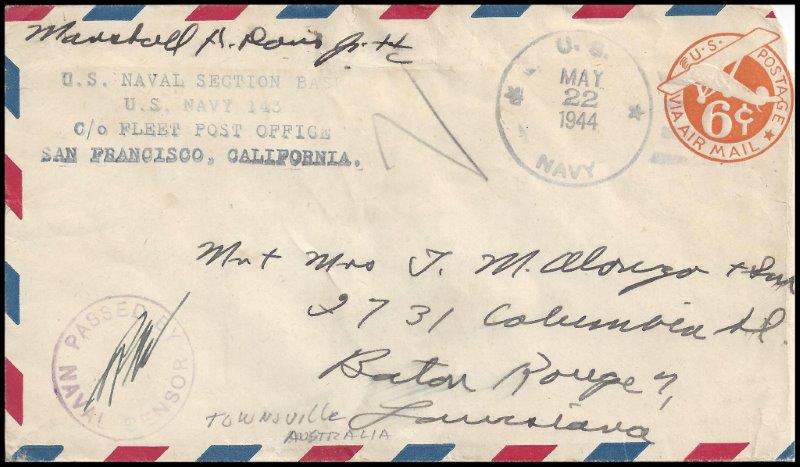 Marshall D. Davis Jr. Hc
U.S. NAVAL SECTION BASE
U.S. NAVY 143
C/o FLEET POST OFFICE
SAN FRANCISCO, CALIFORNIA.
U. S.
MAY
22
1944
NAVY
U.S. POSTAGE
6¢
VIA AIR MAIL
Mr + Mrs J. M. Alonzo + Son
2731 Columbia
Baton Rouge 7,
Louisiana
PASSED BY
NAVAL CENSOR
TOWNSVILLE
AUSTRALIA